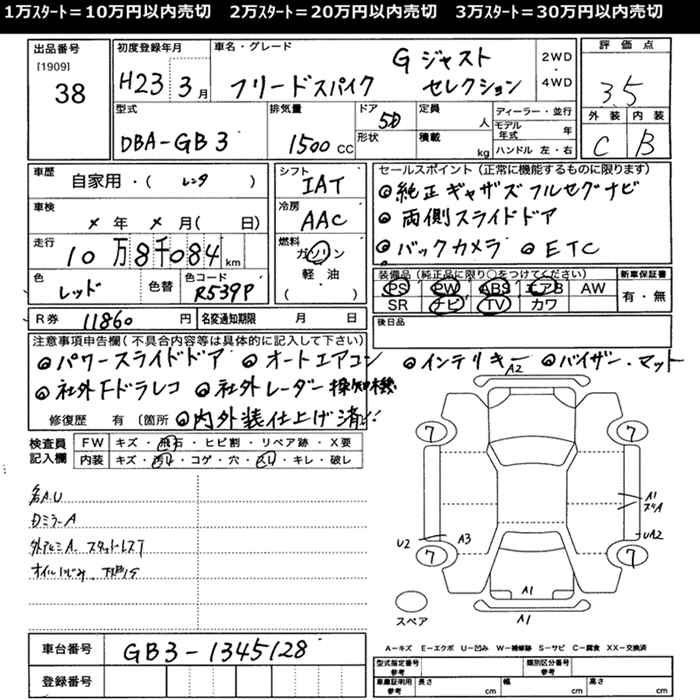 1万ｽﾀｰﾄ＝10万円以内売切　2万ｽﾀｰﾄ＝20万円以内売切　3万ｽﾀｰﾄ＝30万円以内売切
出品番号
[1909]
38
初度登録年月
H23 3月
車名・グレード
フリードスパイク
G ジャスト
セレクション
2WD
・
4WD
評価点
3.5
外装 内装
C B
型式
DBA-GB3
排気量
1500 CC
ドア
5D
形状
定員
人
積載
kg
ディーラー・並行
モデル年式 年
ハンドル 左・右
車歴
自家用・( レンタ )
車検
× 年 × 月( 日)
走行
10万8千084 km
色
レッド
色替
色コード
R539P
シフト
IAT
冷房
AAC
燃料
ガソリン
軽・油
( )
セールスポイント（正常に機能するものに限ります）
◎純正ギャザズフルセグナビ
◎両側スライドドア
◎バックカメラ ◎ETC
装備品（純正品に限り○をつけてください）
PS PW ABS エアB AW
SR ナビ TV カワ
新車保証書
有・無
後日品
R券 11860 円
名変通知期限 月 日
注意事項申告欄(不具合内容等は具体的に記入して下さい)
◎パワースライドドア ◎オートエアコン ◎インテリキー ◎バイザー.マット
◎社外Fドラレコ ◎社外レーダー探知機
修復歴 有 (箇所 ◎内外装仕上げ済!!
検査員
記入欄
FW キズ・飛石・ヒビ割・リペア跡・X要
内装 キズ・汚れ・コゲ・穴・スレ・キレ・破レ
各A.U
Dミラー A
外アルミA. スタットレスT
オイルにじみ.
A2
7
7
A1
U2
A3
UA2
7
7
A1
A1
スペア
A−キズ E−エクボ U−凹み W−補修跡 S−サビ C−腐食 XX−交換済
車台番号
GB3-1345128
登録番号
型式指定番号
参考
類別区分番号
参考
車庫証明用
参考
長さ cm
幅 cm
高さ cm